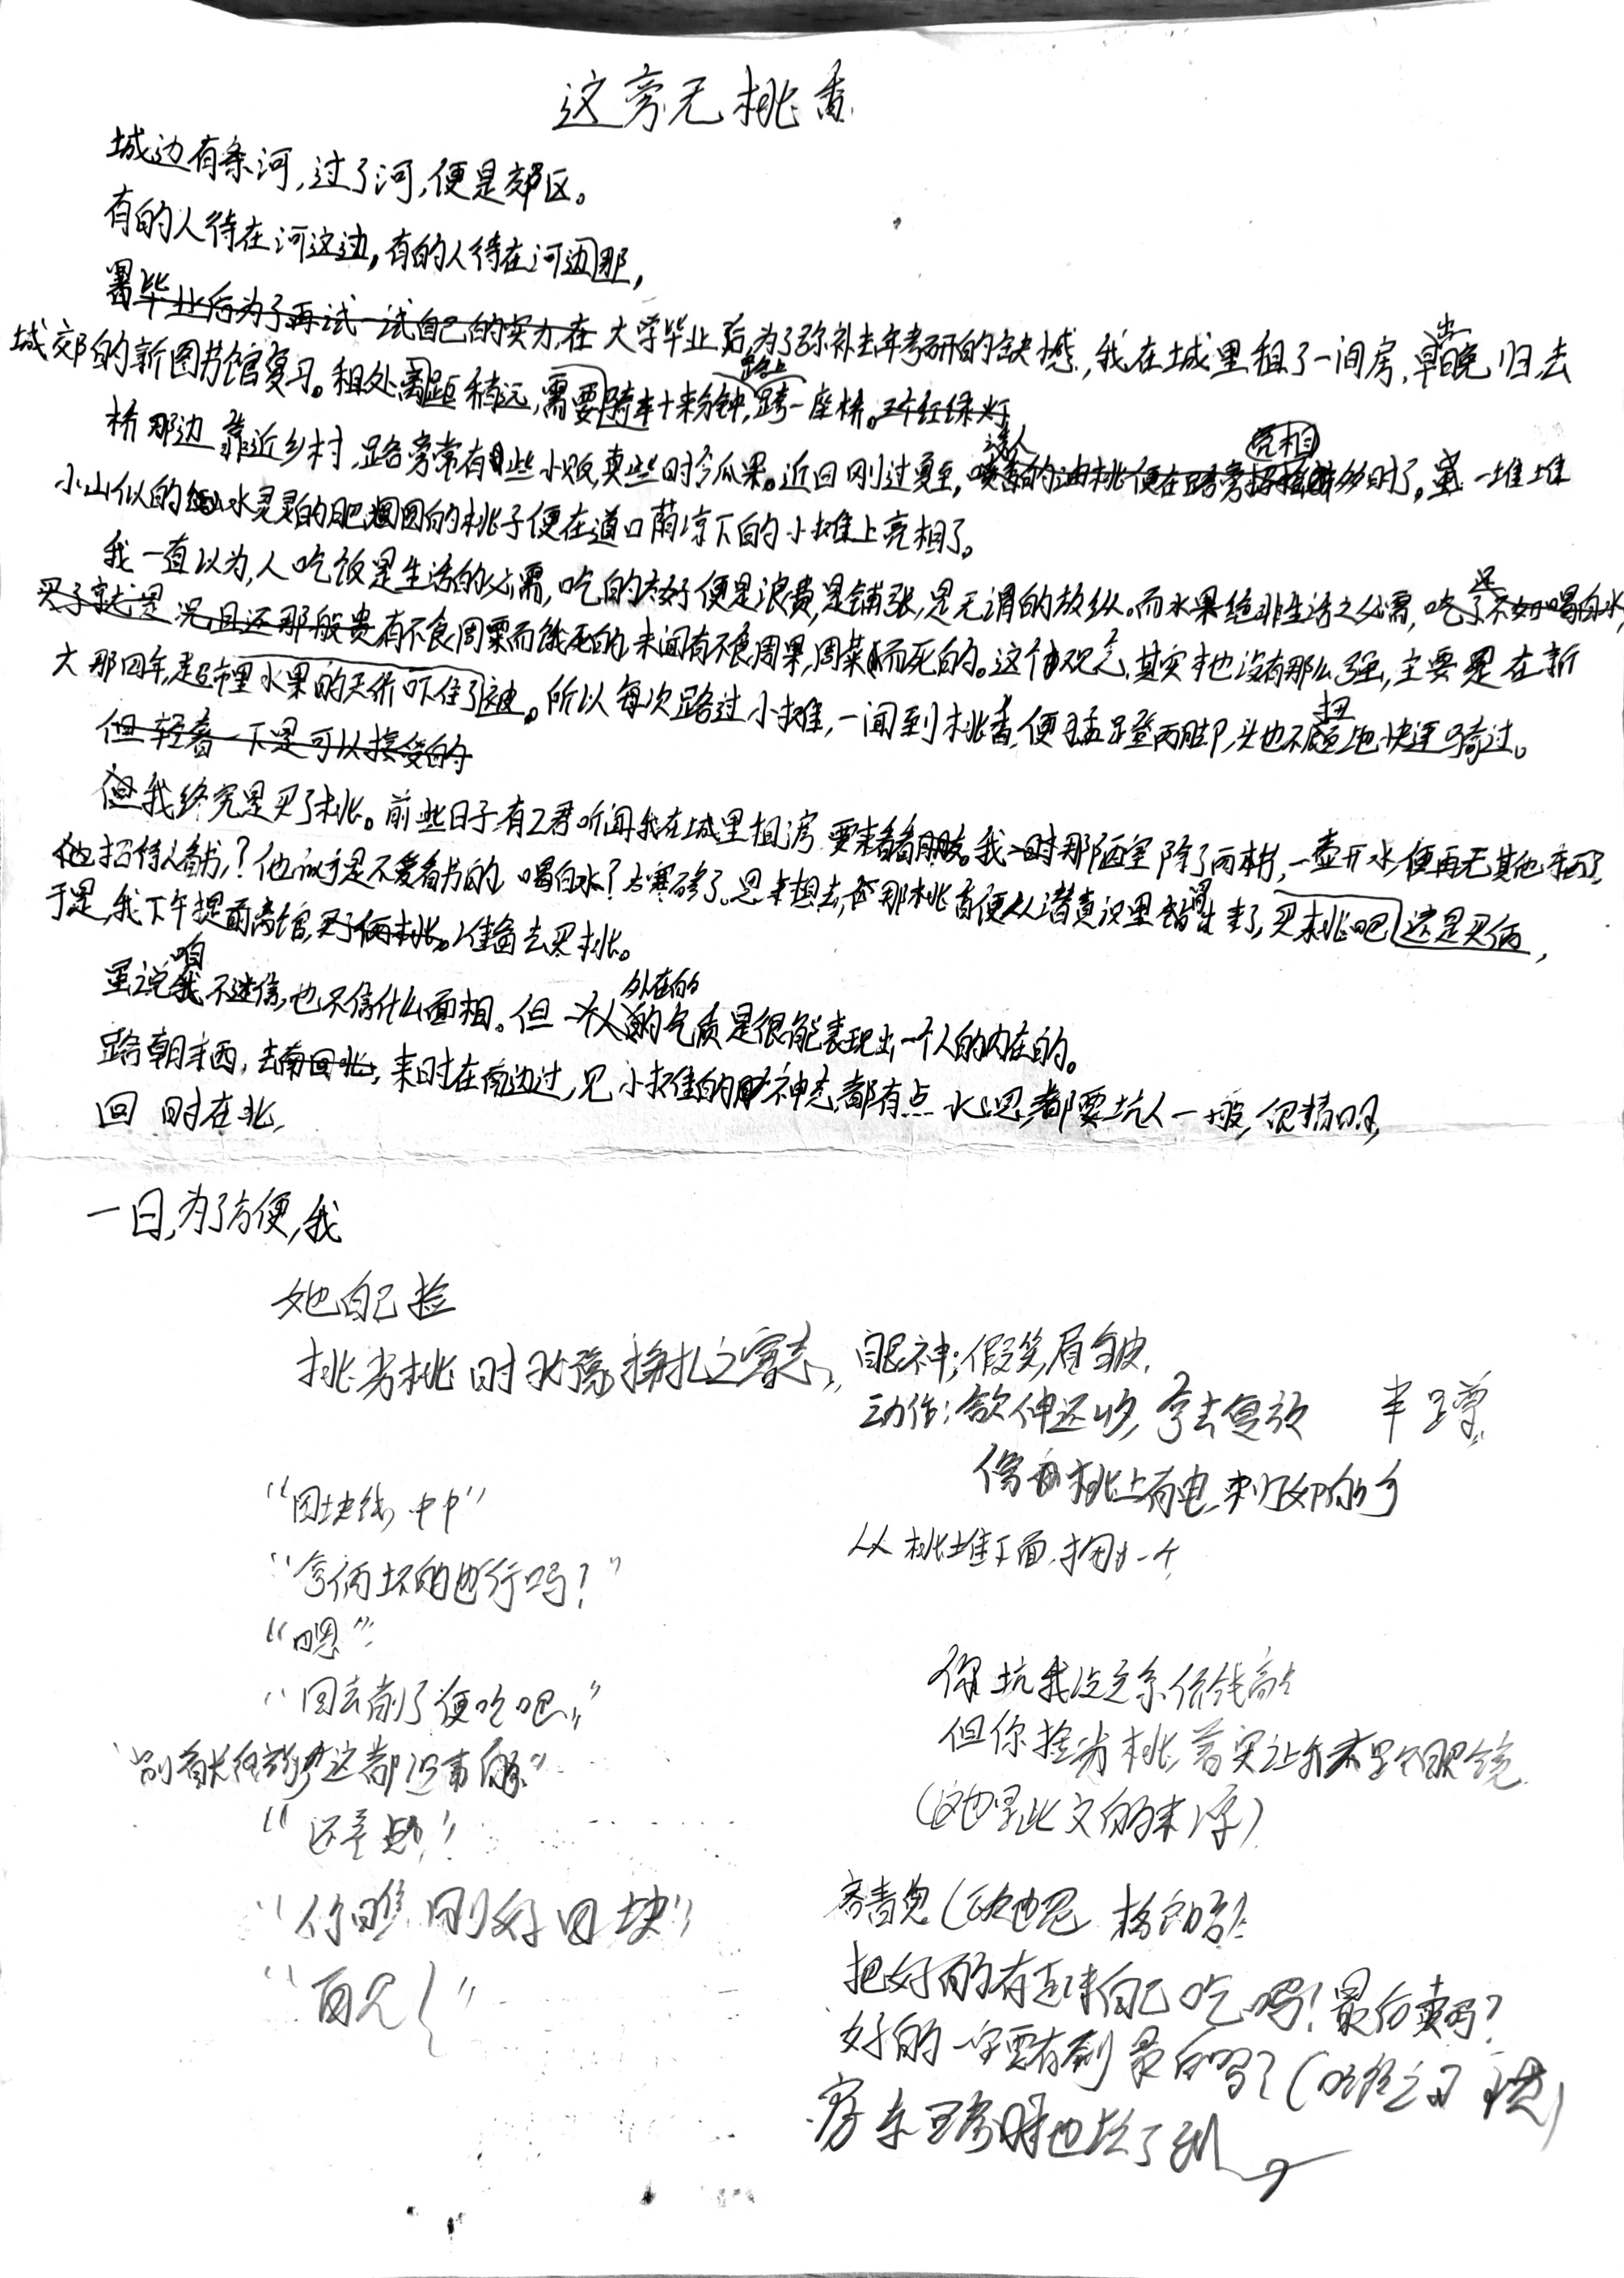 这旁无桃香
城边有条河,过了河,便是郊区。
有的人待在河这边,有的人待在河边那,
暑毕业后为了再试一试自己的实力,在大学毕业后,为了弥补去年考研的缺憾,我在城里租了一间房,早出晚归,去
城郊的新图书馆复习。租处离距稍远,需要骑车十来分钟,路上跨一座桥。三个红绿灯
桥那边靠近乡村,路旁常有些小贩,卖些时令瓜果。近日刚过夏至,诱人的油桃便在路旁亮相多时了,一堆堆
小山似的水灵灵的肥圆的桃子便在道口荫凉下的小摊上亮相了。
我一直以为,人吃饭是生活的必需,吃的太好便是浪费,是铺张,是无谓的放纵。而水果绝非生活之必需,吃了还不如喝白水,
买了就是况且还那般贵有不食周粟而饿死的,未闻有不食周果,周菜而死的。这个观念其实本也没有那么强,主要是在新
大那四年,超市里水果的天价吓住了被。所以每次路过小摊,一闻到桃香,便猛蹬两脚,头也不扭地快速骑过。
但轻奢一下是可以接受的
但我终究是买了桃。前些日子有乙君听闻我在城里租房要来看看。我时那陋室除了两本书,一壶开水,便再无其他东西了,
他招待以书?他似乎是不爱看书的,喝白水?太寒碜了。思来想去,那桃香便从潜意识里冒出来了,买桃吧这是买俩,
于是,我下午提前离馆,买了俩桃。准备去买桃。
虽说咱不迷信,也不信什么面相。但一个人外在的气质是很能表现出一个人的内在的。
路朝东西,去南回北,来时在南边过,见小摊的神态都有点,都要坑人一般,很精明,
回时在北,
一日,为了方便,我
她自己捡
挑劣桃时犹豫挣扎之窘态,眼神;假笑,眉皱,
动作:欲伸还收,拿去复放 半蹲
像桃上有电,刺
从桃堆下面,掏出一个
“四块钱,中中”
“拿俩坏的也行吗?”
“嗯”
“回去削了便吃吧”
“这都没事的”
“还差点”
“你瞧,刚好四块”
“再见!”
你坑我没关系价钱高点
但你捡劣桃,着实让我
(这也是此文的来源)
把好的存起来自己吃吗!最后卖吗?
好的一定要存到最后吗?